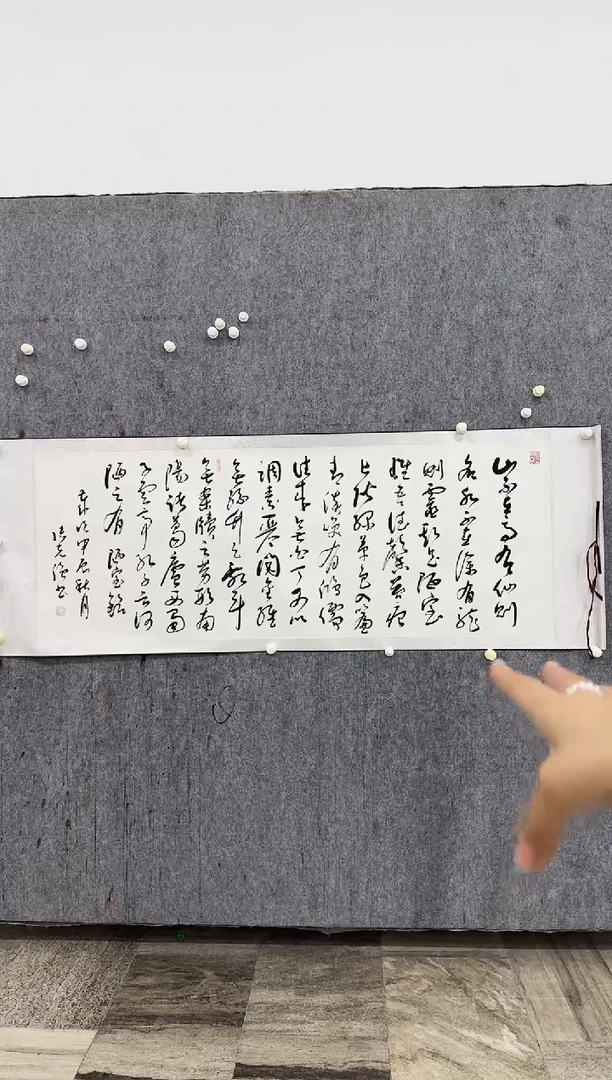 山不在高有仙則
名水不在深有龍
則靈斯是陋室
惟吾德馨苔痕
上階綠草色入簾
青談笑有鴻儒
往來無白丁可以
調素琴閱金經
無絲竹之亂耳
無案牘之勞形南
陽諸葛廬西蜀
子雲亭孔子云何
陋之有 陋室銘
歲次甲辰秋月